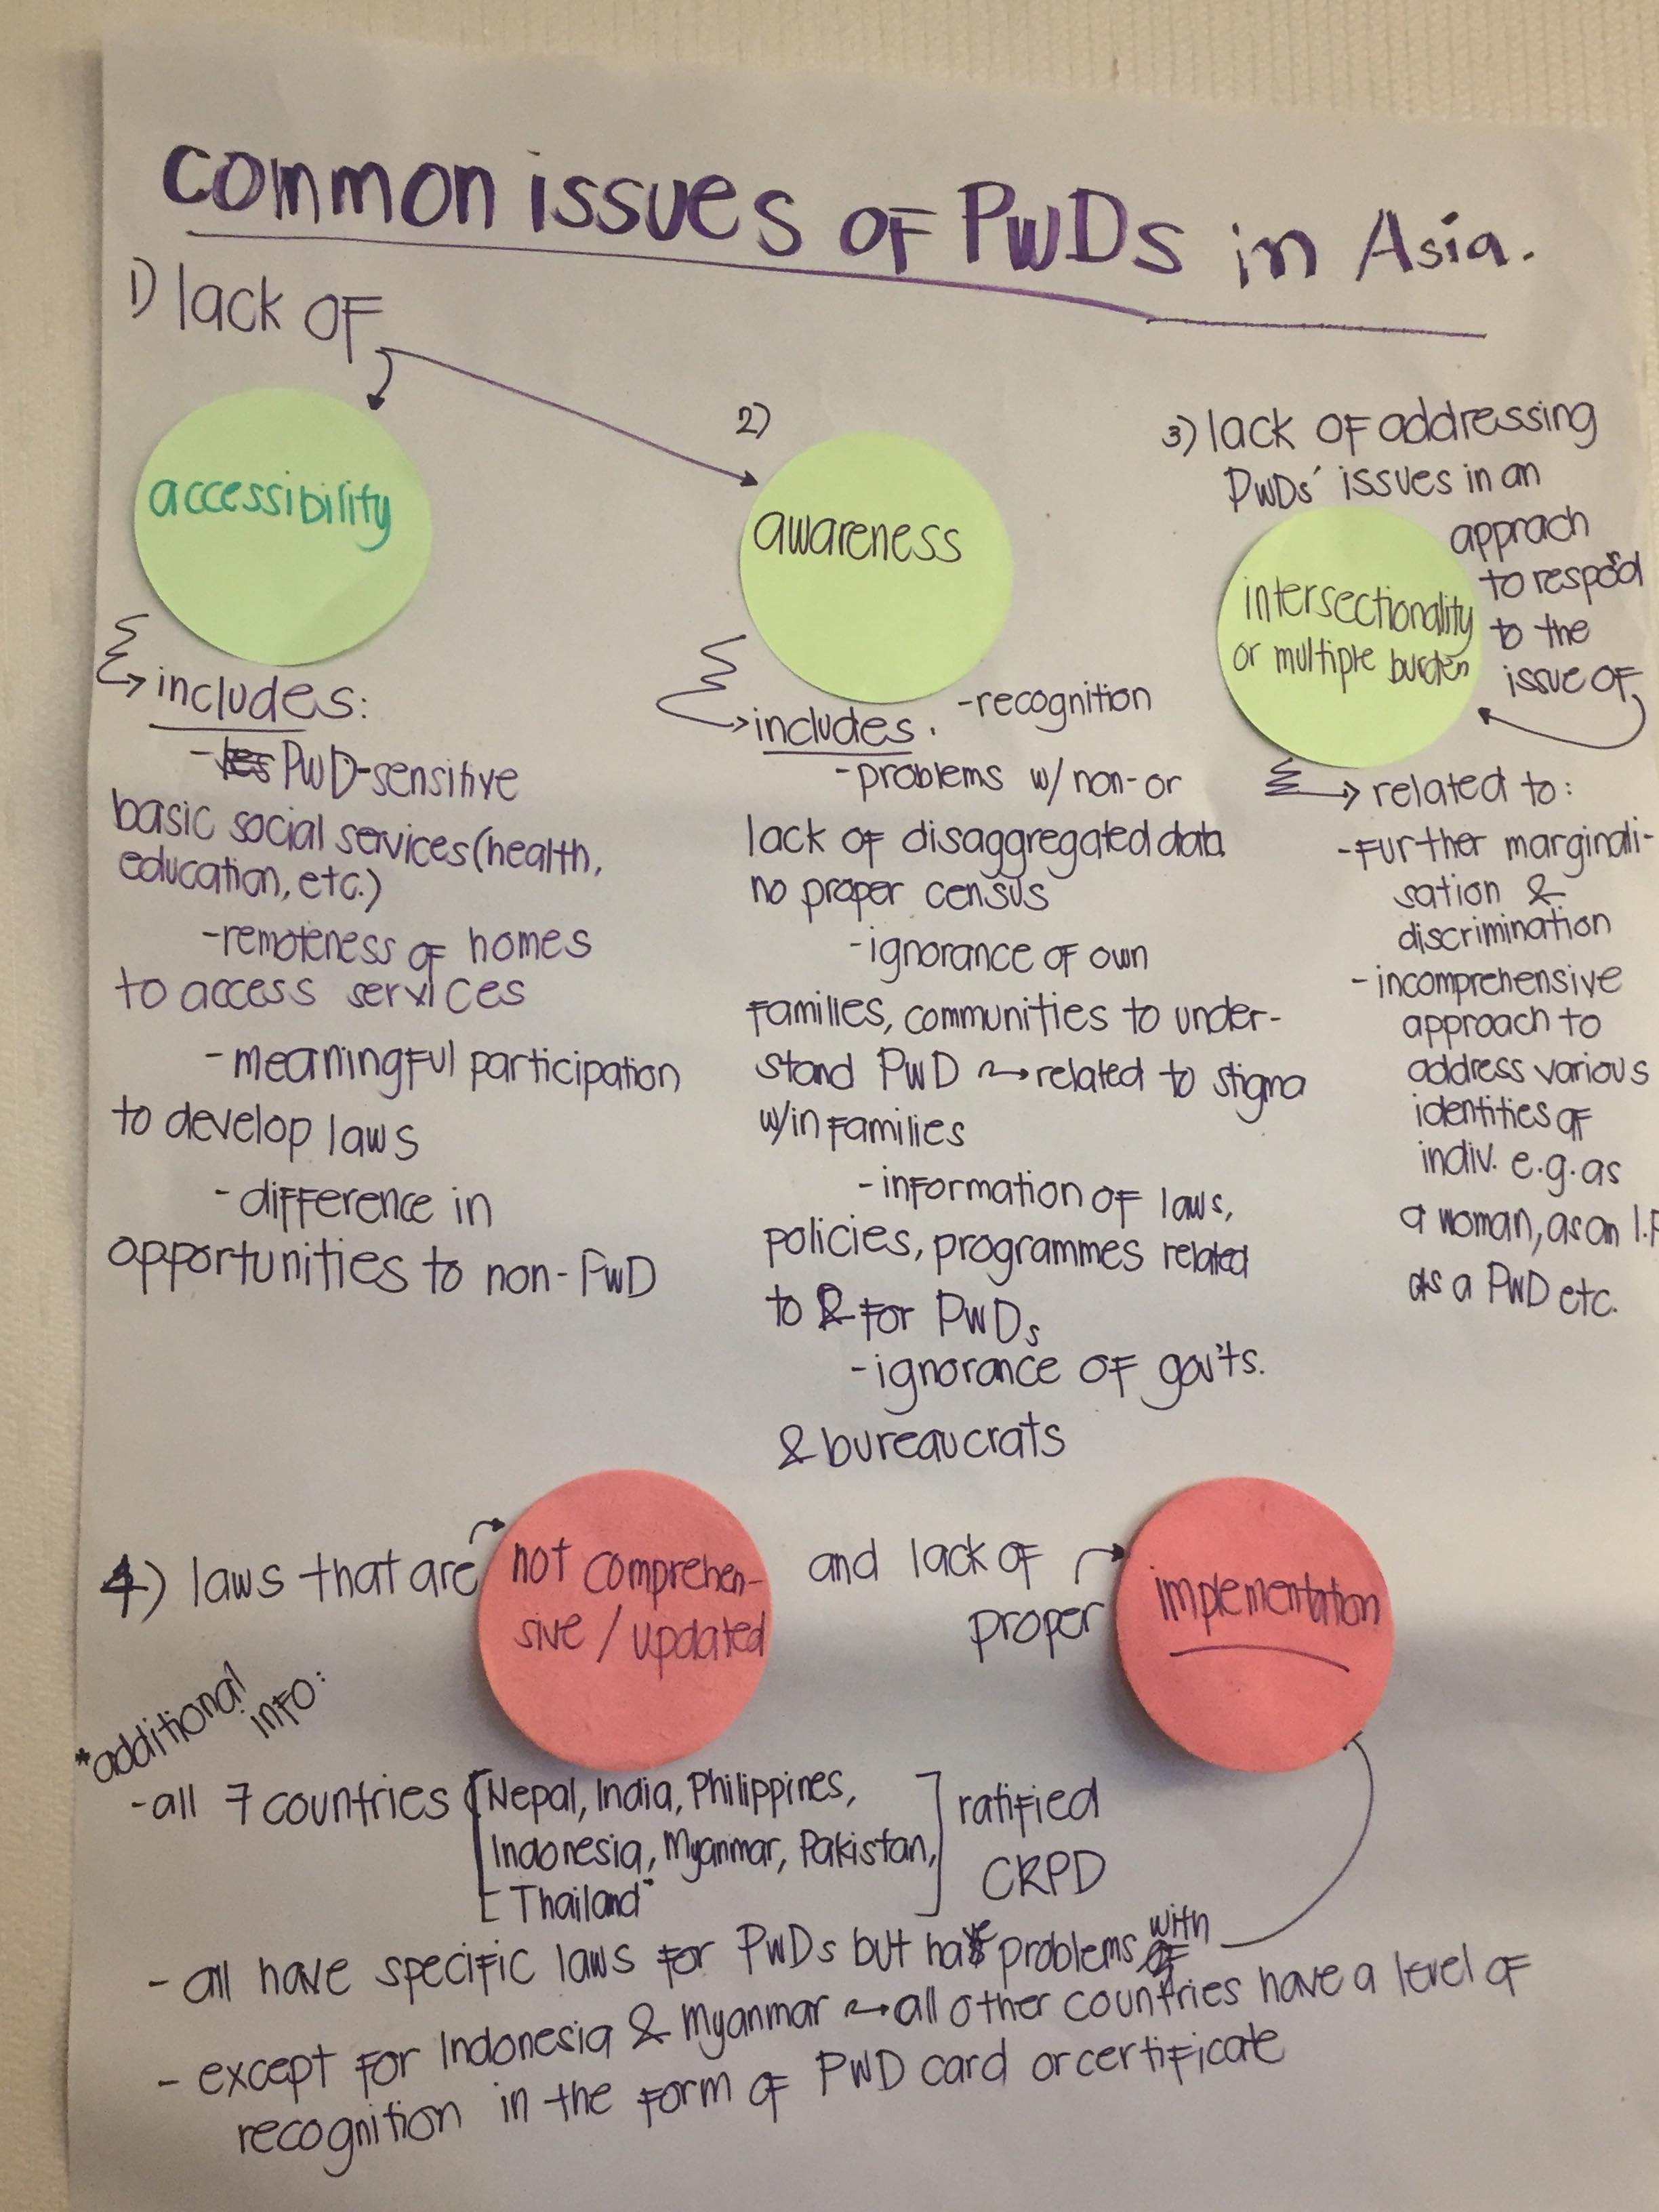 common issues of PWDs in Asia.
1) lack of
accessibility
includes:
- PWD-sensitive
basic social services (health,
education, etc.)
- remoteness of homes
to access services
- meaningful participation
to develop laws
- difference in
opportunities to non-PWD
2)
awareness
includes: - recognition
- problems w/ non- or
lack of disaggregated data
no proper census
- ignorance of own
families, communities to under-
stand PWD → related to stigma
w/in families
- information of laws,
policies, programmes related
to & for PWDs
- ignorance of gov'ts.
& bureaucrats
3) lack of addressing
PWDs' issues in an
apprach
to respond
to the
issue of
intersectionality
or multiple burden
→ related to:
- further marginali-
sation &
discrimination
- incomprehensive
approach to
address various
identities of
indiv. e.g. as
a woman, as an I.P
as a PWD etc.
4) laws that are
not comprehen-
sive / updated
and lack of
proper
implementation
*additional
info:
- all 7 countries [Nepal, India, Philippines,
Indonesia, Myanmar, Pakistan,
Thailand] ratified
CRPD
- all have specific laws for PWDs but has problems with
- except for Indonesia & Myanmar → all other countries have a level of
recognition in the form of PWD card or certificate